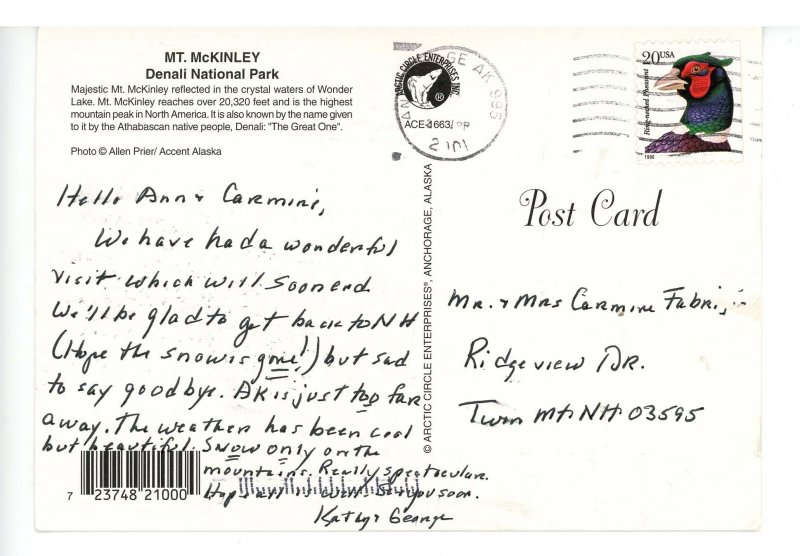 MT. McKINLEY
Denali National Park
Majestic Mt. McKinley reflected in the crystal waters of Wonder
Lake. Mt. McKinley reaches over 20,320 feet and is the highest
mountain peak in North America. It is also known by the name given
to it by the Athabascan native people, Denali: "The Great One".
Photo © Allen Prier/ Accent Alaska
ARCTIC CIRCLE ENTERPRISES INC.
®
ACE-1663/PP
GE AK 995
20USA
Ring-necked Pheasant
1998
Post Card
© ARCTIC CIRCLE ENTERPRISES®, ANCHORAGE, ALASKA
Hello Ann & Carmine,
We have had a wonderful
visit which will soon end
We'll be glad to get back to NH
(Hope the snow is gone!) but sad
to say goodbye. AK is just too far
away. The weather has been cool
but beautiful. Snow only on the
mountains. Really spectacular.
Hope all is well. See you soon.
Kathy & George
Mr. & Mrs Carmine
Ridgeview DR.
Twin Mt NH 03595
7 23748 21000